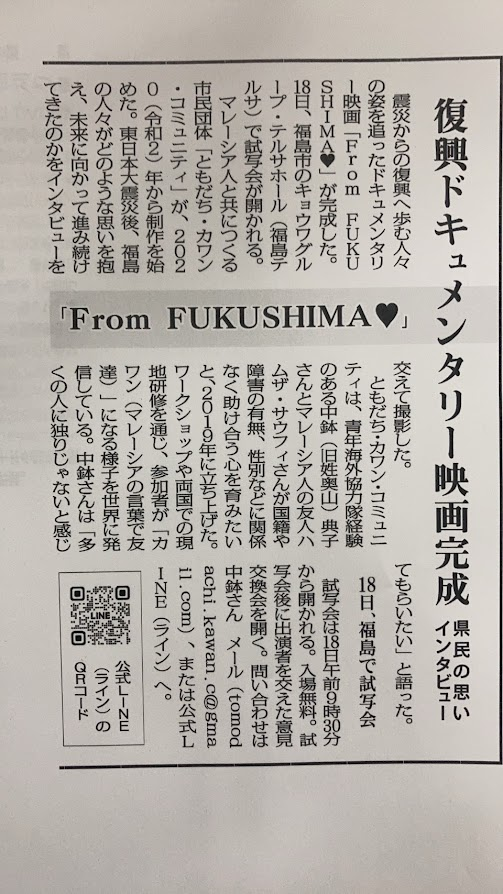 復興ドキュメンタリー映画完成
県民の思い
インタビュー
震災からの復興へ歩む人々
の姿を追ったドキュメンタリ
ー映画「From FUKU
SHIMA♥」が完成した。
18日、福島市のキョウワグル
ープ・テルサホール（福島テ
ルサ）で試写会が開かれる。
マレーシア人と共につくる
市民団体「ともだち・カワン
・コミュニティ」が、202
0（令和2）年から制作を始
めた。東日本大震災後、福島
の人々がどのような思いを抱
え、未来に向かって進み続け
てきたのかをインタビューを
「From FUKUSHIMA♥」
交えて撮影した。
ともだち・カワン・コミュニ
ティは、青年海外協力隊経験
のある中鉢（旧姓奥山）典子
さんとマレーシア人の友人ハ
ムザ・サウフィさんが国籍や
障害の有無、性別などに関係
なく助け合う心を育みたい
と、2019年に立ち上げた。
ワークショップや両国での現
地研修を通じ、参加者が「カ
ワン（マレーシアの言葉で友
達）」になる様子を世界に発
信している。中鉢さんは「多
くの人に独りじゃないと感じ
てもらいたい」と語った。
18日、福島で試写会
試写会は18日午前9時30分
から開かれる。入場無料。試
写会後に出演者を交えた意見
交換会を開く。問い合わせは
中鉢さん　メール（tomod
achi.kawan.c@gma
il.com）、または公式L
INE（ライン）へ。
LINE
公式LINE
（ライン）の
QRコード